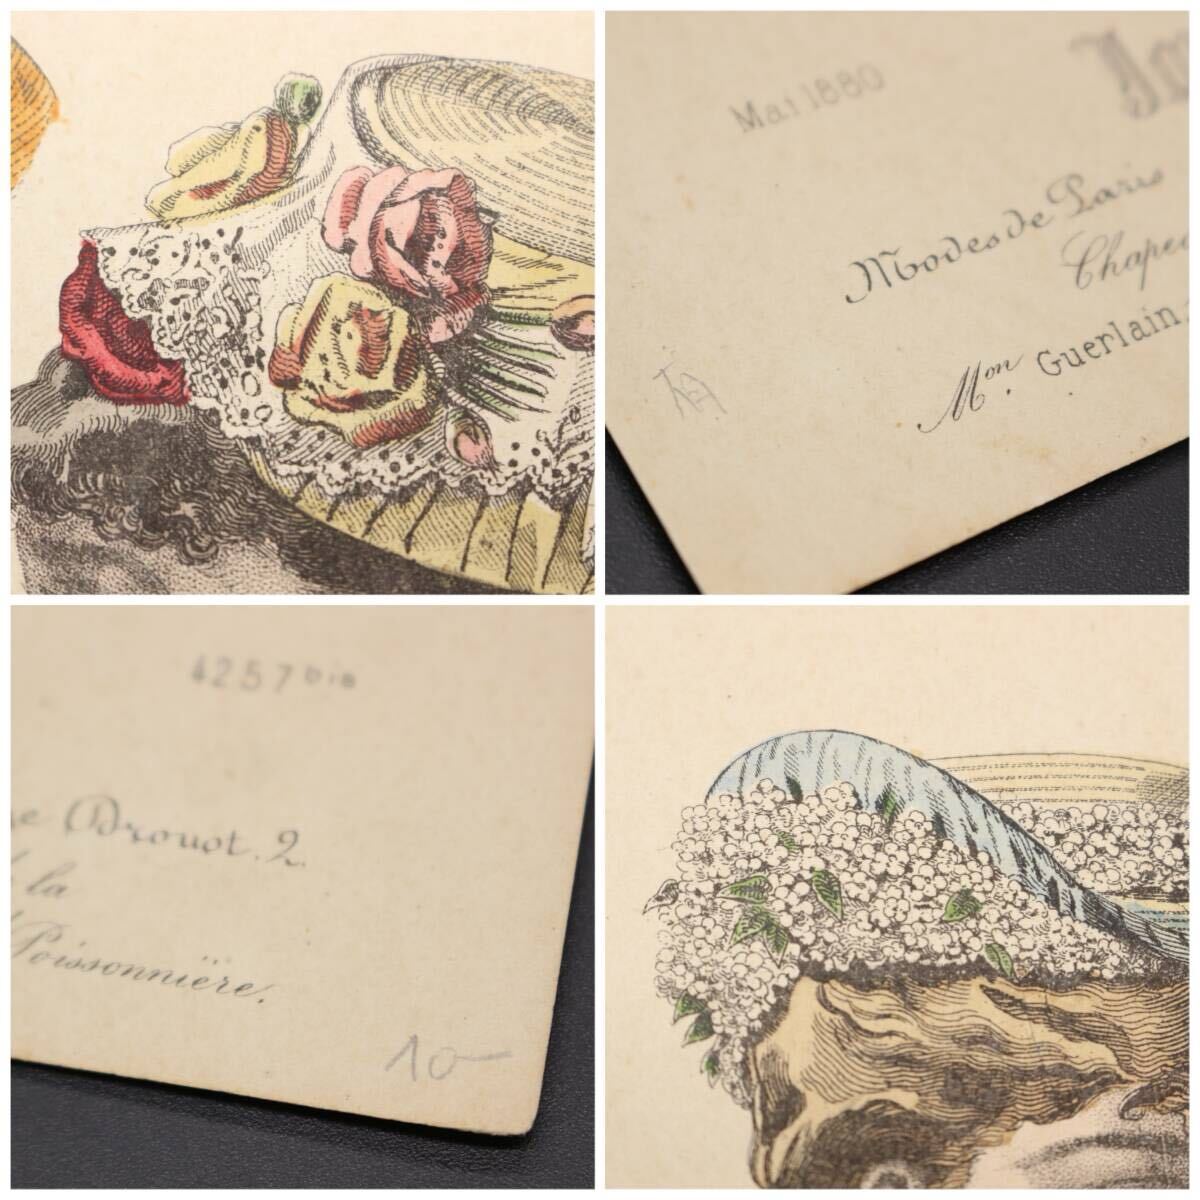 Mai 1880
Modes de Paris
Mon. Guerlain
4257 bis
Drouot. 2.
la
Poissonnière.
10